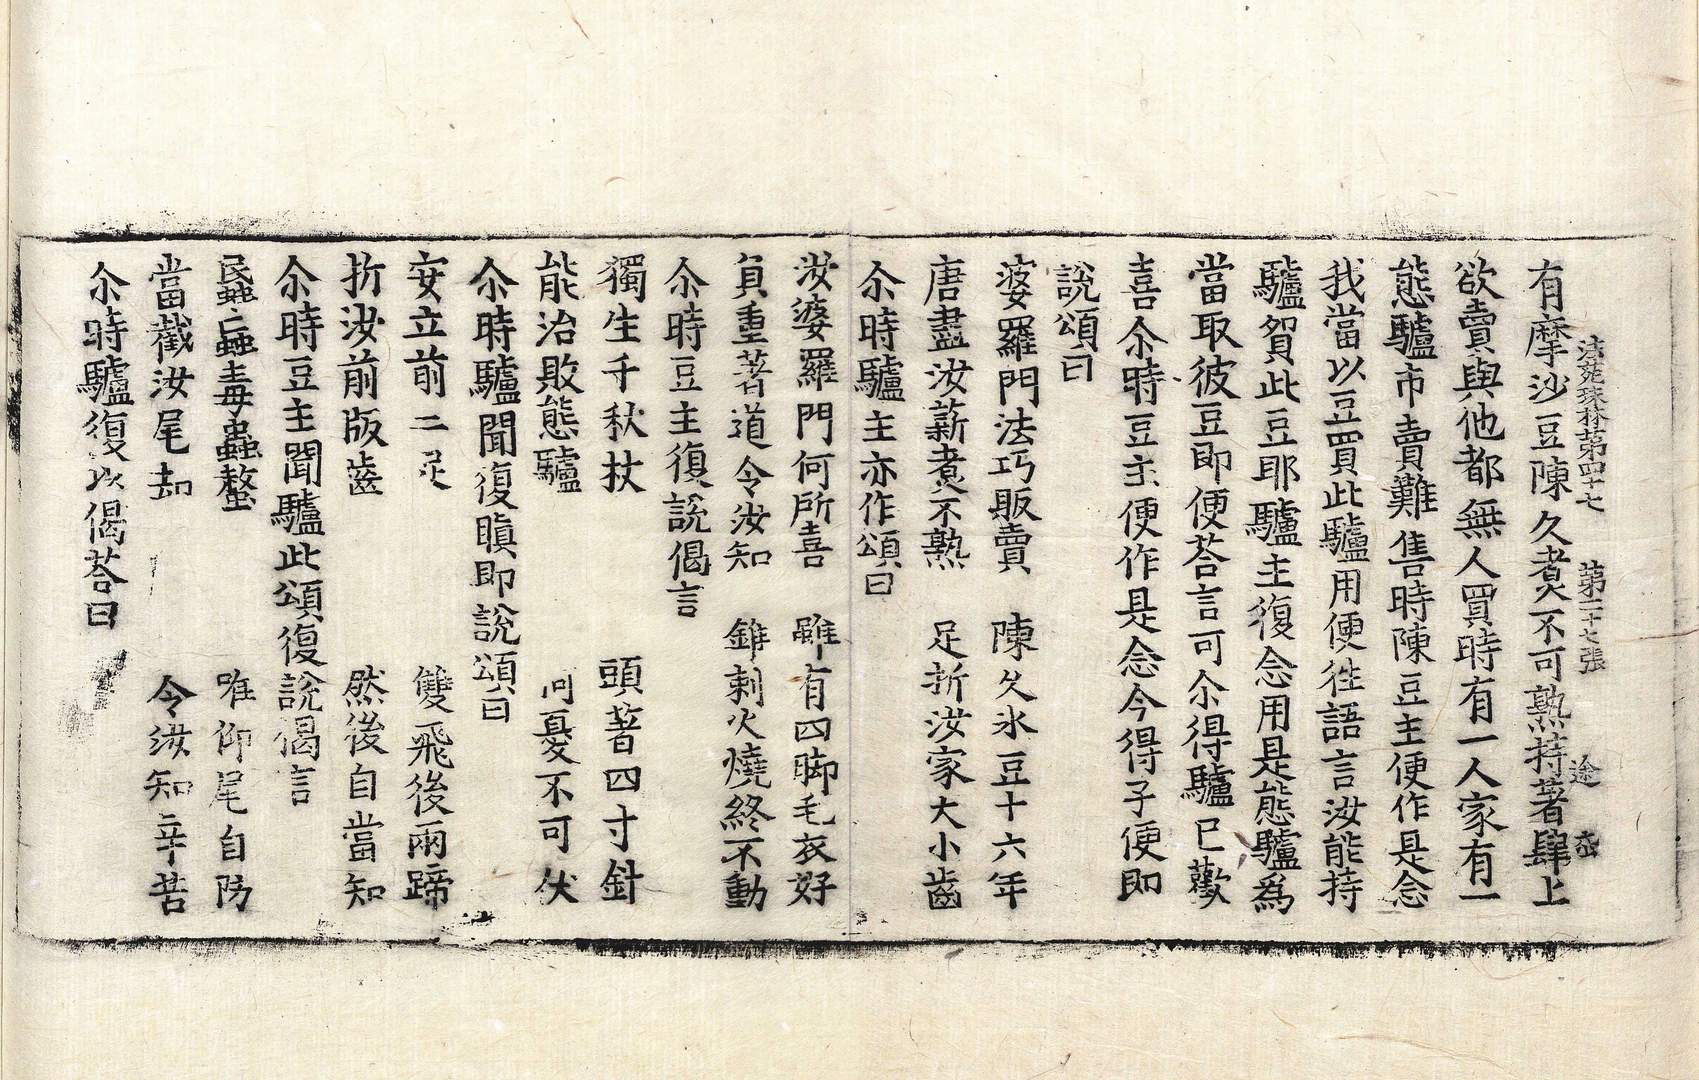 法苑珠林第四十七 第二十七張 途
有摩沙豆陳久煮不可熟持著肆上
欲賣與他都無人買時有一人家有一
態驢市賣難售時陳豆主便作是念
我當以豆買此驢用便往語言汝能持
驢賀此豆耶驢主復念用是態驢爲
當取彼豆即便荅言可尒得驢已歡
喜尒時豆主便作是念今得子便即
說頌曰
婆羅門法巧販賣 陳久氷豆十六年
唐盡汝薪煮不熟 足折汝家大小齒
尒時驢主亦作頌曰
汝婆羅門何所喜 雖有四脚毛衣好
負重著道令汝知 錐刺火燒終不動
尒時豆主復說偈言
獨生千秋杖 頭著四寸針
能治敗態驢 何憂不可伏
尒時驢聞復瞋即說頌曰
安立前二足 雙飛後兩蹄
折汝前版齒 然後自當知
尒時豆主聞驢此頌復說偈言
蟁䖟毒蟲螫 唯仰尾自防
當截汝尾却 令汝知辛苦
尒時驢復以偈荅曰